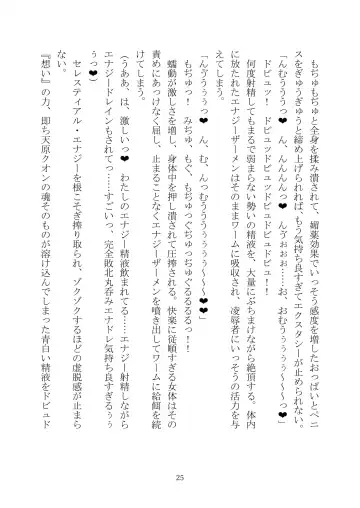 もぢゅもぢゅと全身を揉み潰されて、媚薬効果でいっそう感度を増したおっぱいとペニ
スをぎゅうぎゅうと締め上げられれば、もう気持ち良すぎてエクスタシーが止められない。
ドビュッ！　ドビュッドビュッドビュドビュ！！
「んむぅううっ❤　ん、んんんんっ❤　んゔぉぉぉ……お、おむうぅぅぅぅ～～～っ❤」
何度射精してもまるで弱まらない勢いの精液を、大量にぶちまけながら絶頂する。体内
に放たれたエナジーザーメンはそのままワームに吸収され、凌辱者にいっそうの活力を与
えてしまう。
「んゔうぅぅっ❤　ん、む、んっむううぅぅぅぅぅ～～～～❤❤」
もぢゅっ！　みぢゅ、もぐ、もぢゅっぐぢゅっぢゅぐるるるるっ！
蠕動が激しさを増し、身体中を押し潰されて圧搾される。快楽に従順すぎる女体はその
責めにあっけなく屈し、止まることなくエナジーザーメンを噴き出してワームに給餌を続
けてしまう。
（うああ、は、激しいっ❤　わたしのエナジー精液飲まれてる……エナジー射精しながら
エナジードレインもされてっ……すごいっ、完全敗北丸呑みエナドレ気持ち良すぎるぅぅ
ぅっ❤）
セレスティアル・エナジーを根こそぎ搾り取られ、ゾクゾクするほどの虚脱感が止まら
ない。
『想い』の力、即ち天原クオンの魂そのものが溶け込んでしまった青白い精液をドビュド
25